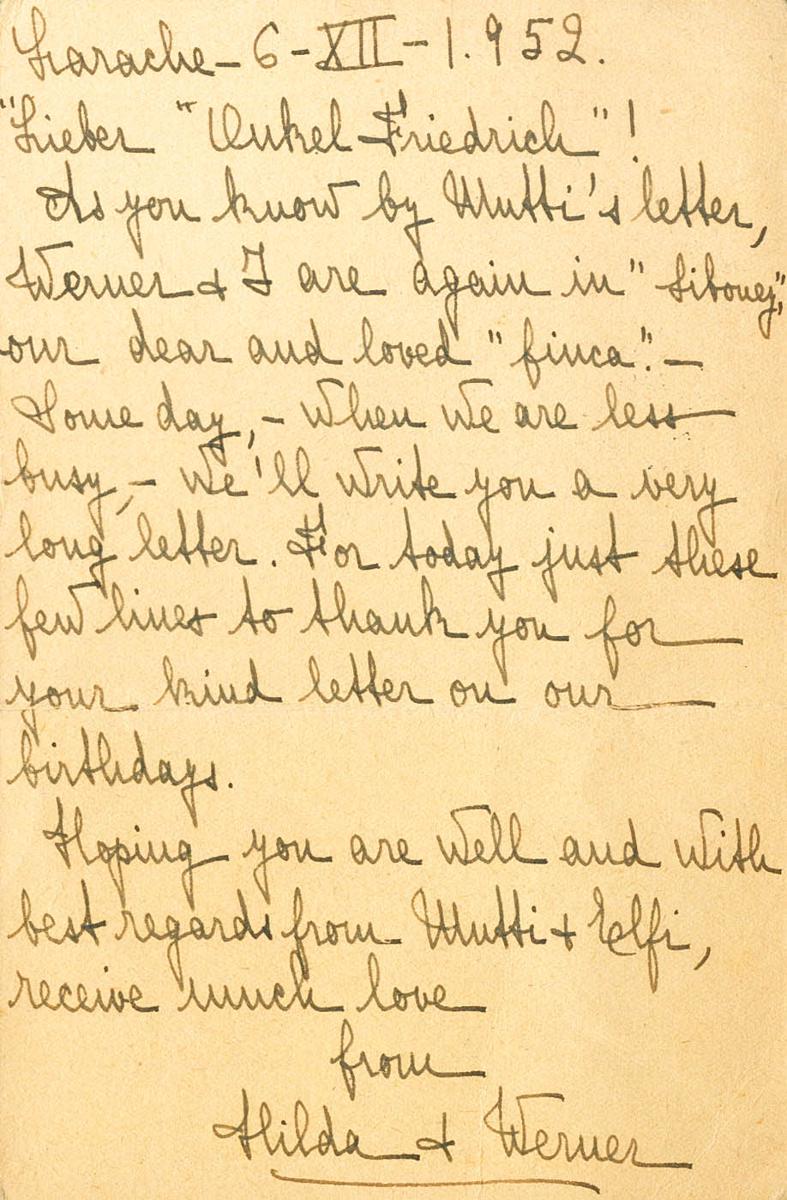 Larache - 6 - XII - 1.952.
"Lieber "Onkel Friedrich"!
As you know by Mutti's letter,
Werner & I are again in "Siboney",
our dear and loved "finca". -
Some day, - when we are less
busy, - we'll write you a very
long letter. For today just these
few lines to thank you for
your kind letter on our
birthdays.
Hoping you are well and with
best regards from Mutti & Elfi,
receive much love
from
Hilda & Werner